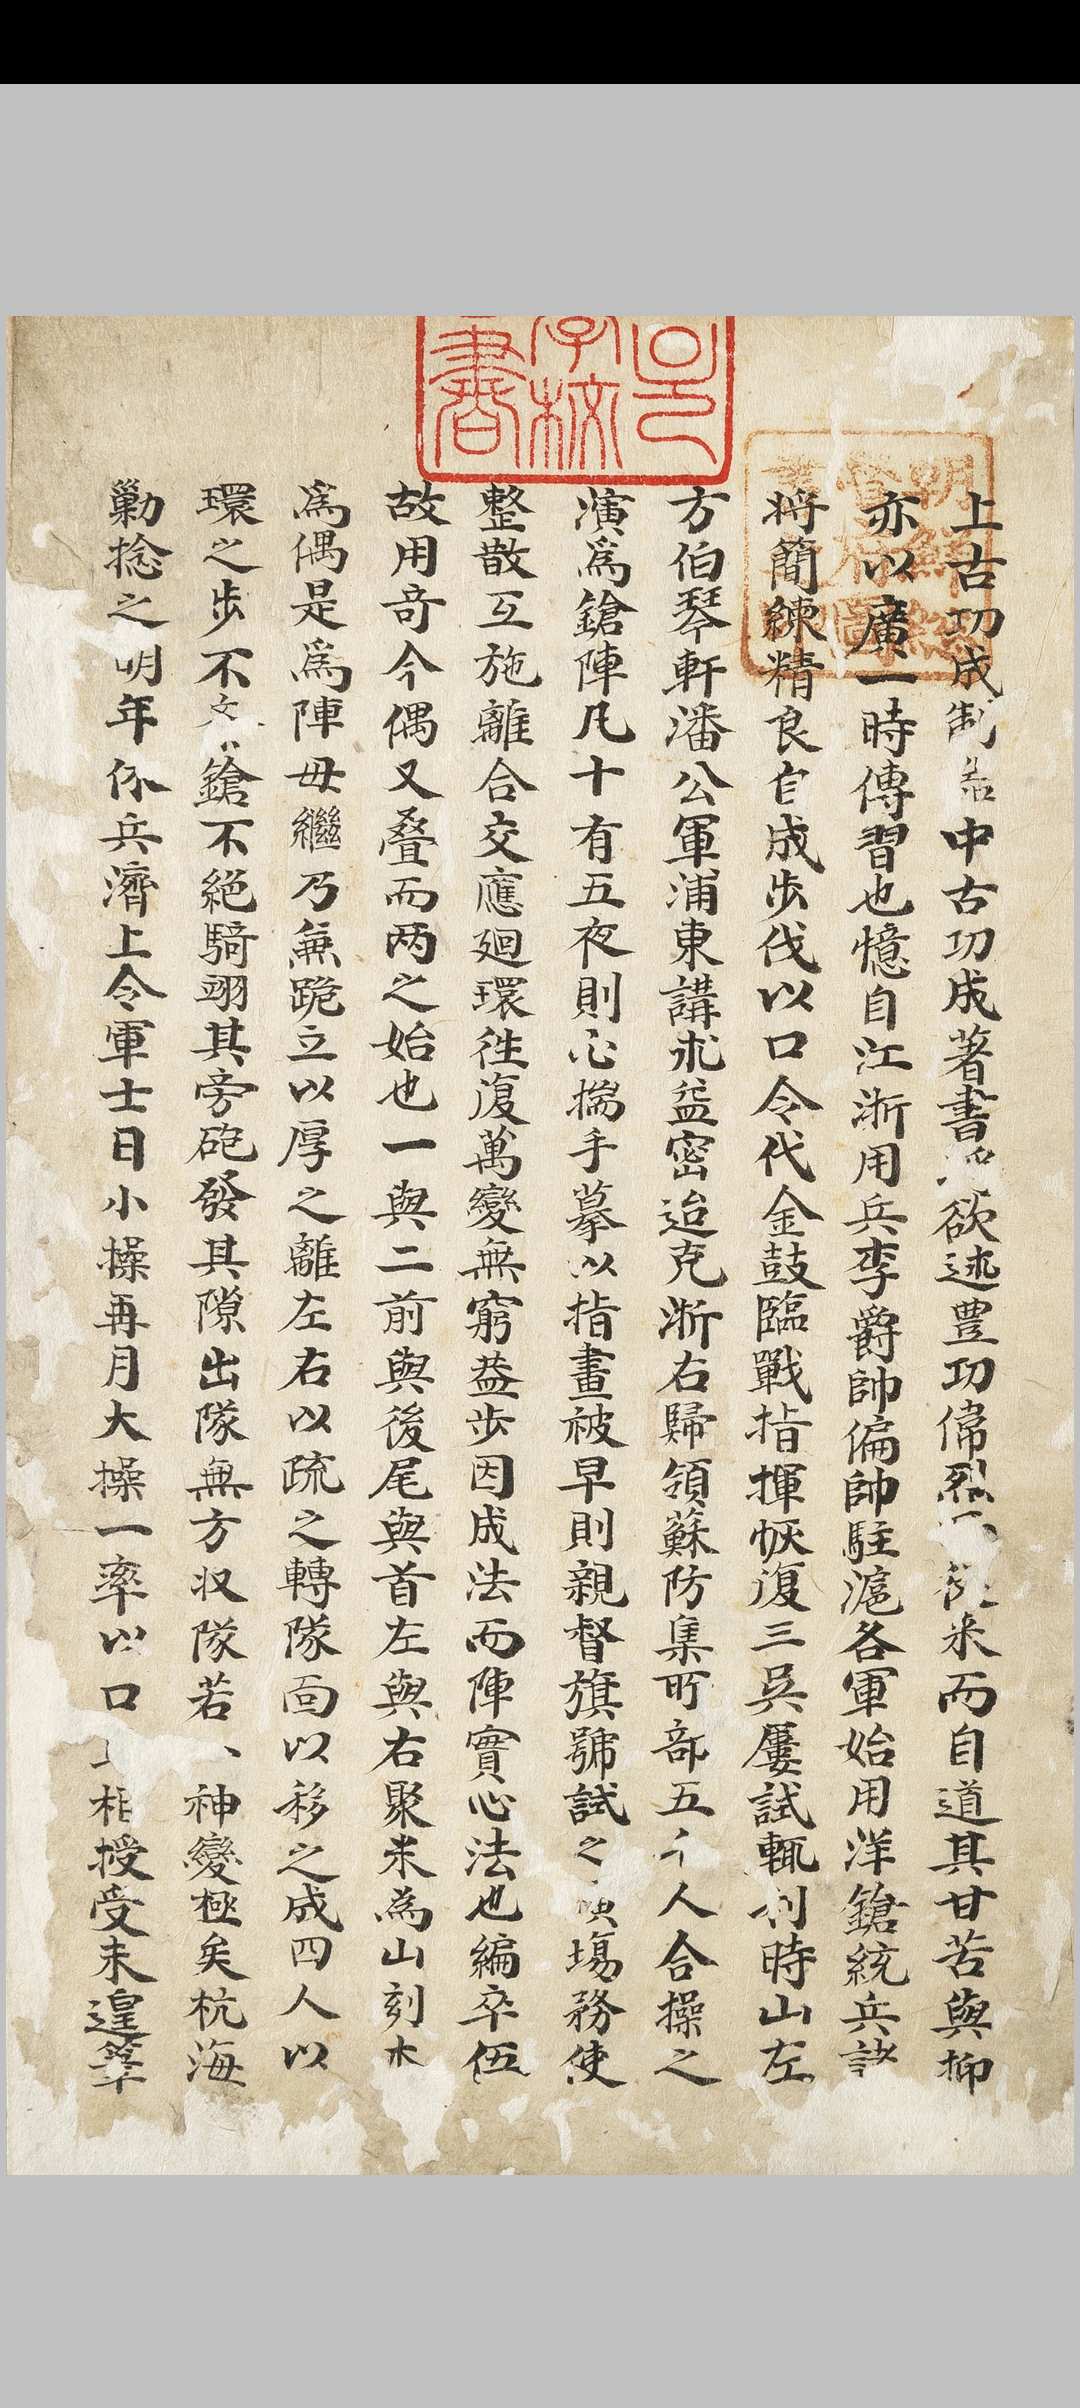 上古功成制 中古功成著書 欲述豊功偉烈 來而自道其甘苦與抑
亦以廣一時傳習也憶自江浙用兵李爵帥偏帥駐滬各軍始用洋鎗統兵諸
將簡練精良自成步伐以口令代金鼓臨戰指揮恢復三吳屢試輒利時山左
方伯琴軒潘公軍浦東講求益密迨克浙右歸領蘇防集所部五千人合操之
演爲鎗陣凡十有五夜則心揣手摹以指畫被早則親督旗號試之 場務使
整散互施離合交應廻環徃復萬變無窮葢步因成法而陣實心法也編卒伍
故用竒今偶又疊而两之始也一與二前與後尾與首左與右聚米為山刻木
爲偶是爲陣毋繼乃兼跪立以厚之離左右以疏之轉隊面以移之成四人以
環之步不 鎗不絕騎翊其旁砲發其隙出隊無方収隊若 神變極矣杭海
勦捻之明年 兵濟上令軍士日小操再月大操一率以口 相授受未遑筆